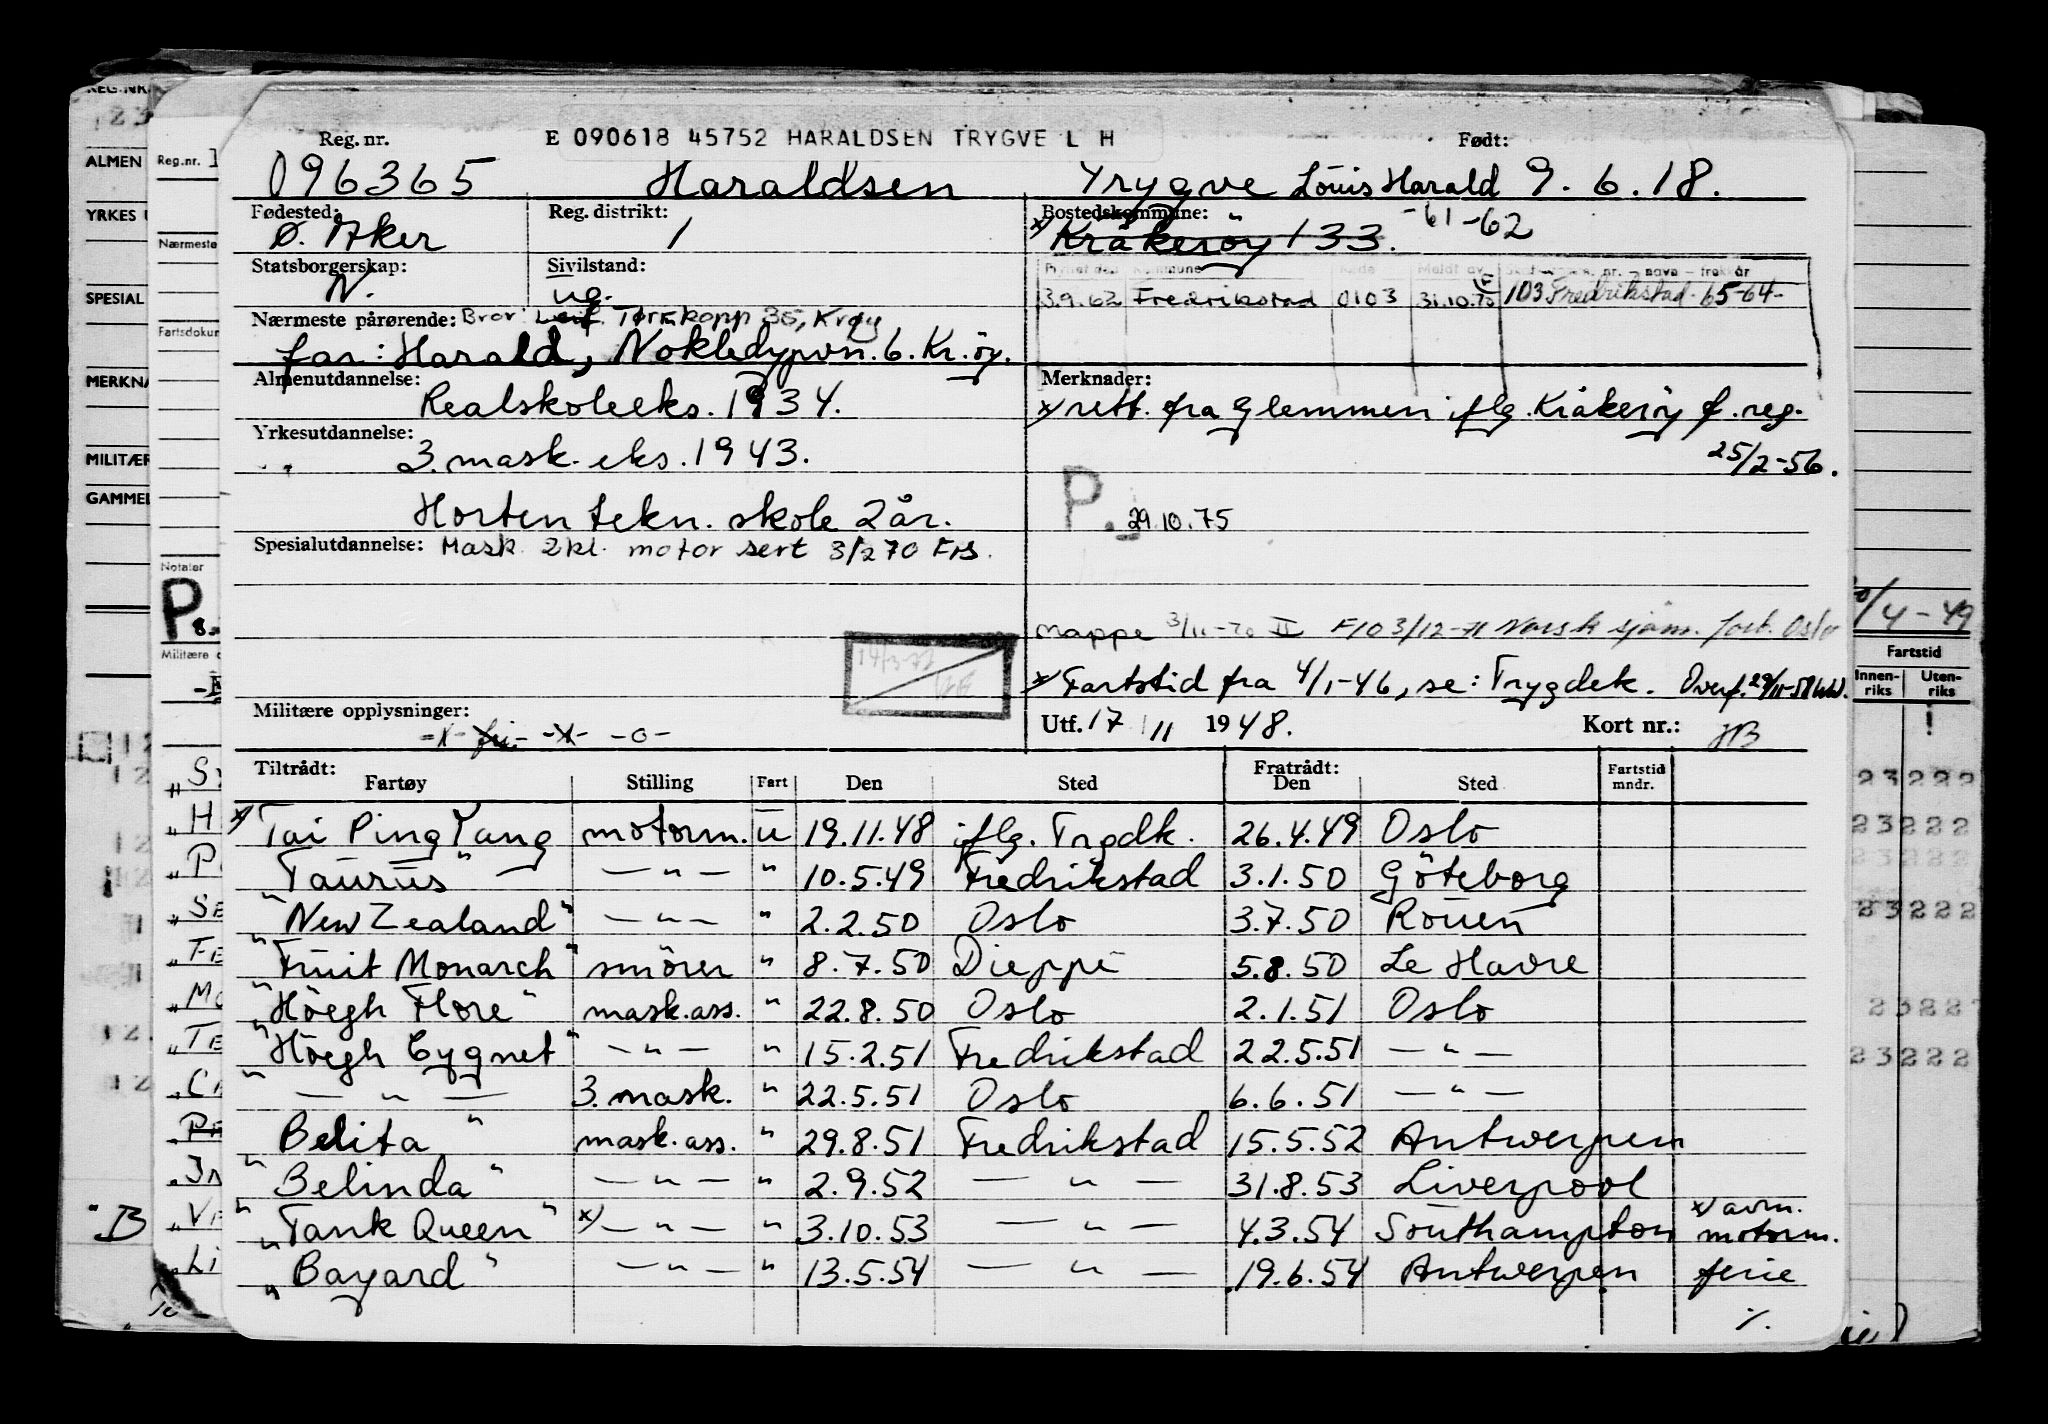 Reg. nr. E 090618 45752 HARALDSEN TRYGVE L H Født:
096365 Haraldsen Trygve Louis Harald 9.6.18.
Fødested: Reg. distrikt: Bostedskommune: -61-62
Ø. Aker 1 x Kråkerøy 133.
Statsborgerskap: Sivilstand:
N. ug. 3.9.62 Fredrikstad 0103 31.10.70 103 Fredrikstad 65-64-
Nærmeste pårørende: Bror: Leif. Torskopp 35, Krøy
far: Harald, Nokledypvn. 6. Kr.öy.
Almenutdannelse: Merknader:
Realskoleeks. 1934. x rett. fra Glemmen iflg. Kråkeröy f. reg.
Yrkesutdannelse: 25/2-56.
3. mask. eks. 1943.
Horten tekn. skole 2 år. P. 29.10.75
Spesialutdannelse: Mask. 2 kl. motor sert 3/2 70 Frs.
mappe 3/11-70 II F103/12-71 Norsk sjøm. forb. Oslo
x Fartstid fra 4/1-46, se: Trygdek. Overf. 29/11-58
Militære opplysninger: Utf. 17/11 1948. Kort nr.:
-x- fri. -x- -o- HB
Tiltrådt: Fratrådt: Fartstid
Fartøy Stilling Fart Den Sted Den Sted mndr.
x Tai Ping Yang motorm. u 19.11.48 iflg. Trgdk. 26.4.49 Oslo
" Taurus " — " — " 10.5.49 Fredrikstad 3.1.50 Göteborg
" New Zealand " — " — " 2.2.50 Oslo 3.7.50 Rouen
" Fruit Monarch " smörer " 8.7.50 Dieppe 5.8.50 Le Havre
" Höegh Flore " mask.ass. " 22.8.50 Oslo 2.1.51 Oslo
" Höegh Cygnet " — " — " 15.2.51 Fredrikstad 22.5.51 — " —
— " — 3. mask. " 22.5.51 Oslo 6.6.51 — " —
" Belita " mask.ass. " 29.8.51 Fredrikstad 15.5.52 Antwerpen
" Belinda " — " — " 2.9.52 — " — 31.8.53 Liverpool
" Tank Queen " x) — " — " 3.10.53 — " — 4.3.54 Southampton x avm. motorm.
" Bayard " — " — " 13.5.54 — " — 19.6.54 Antwerpen ferie
./.